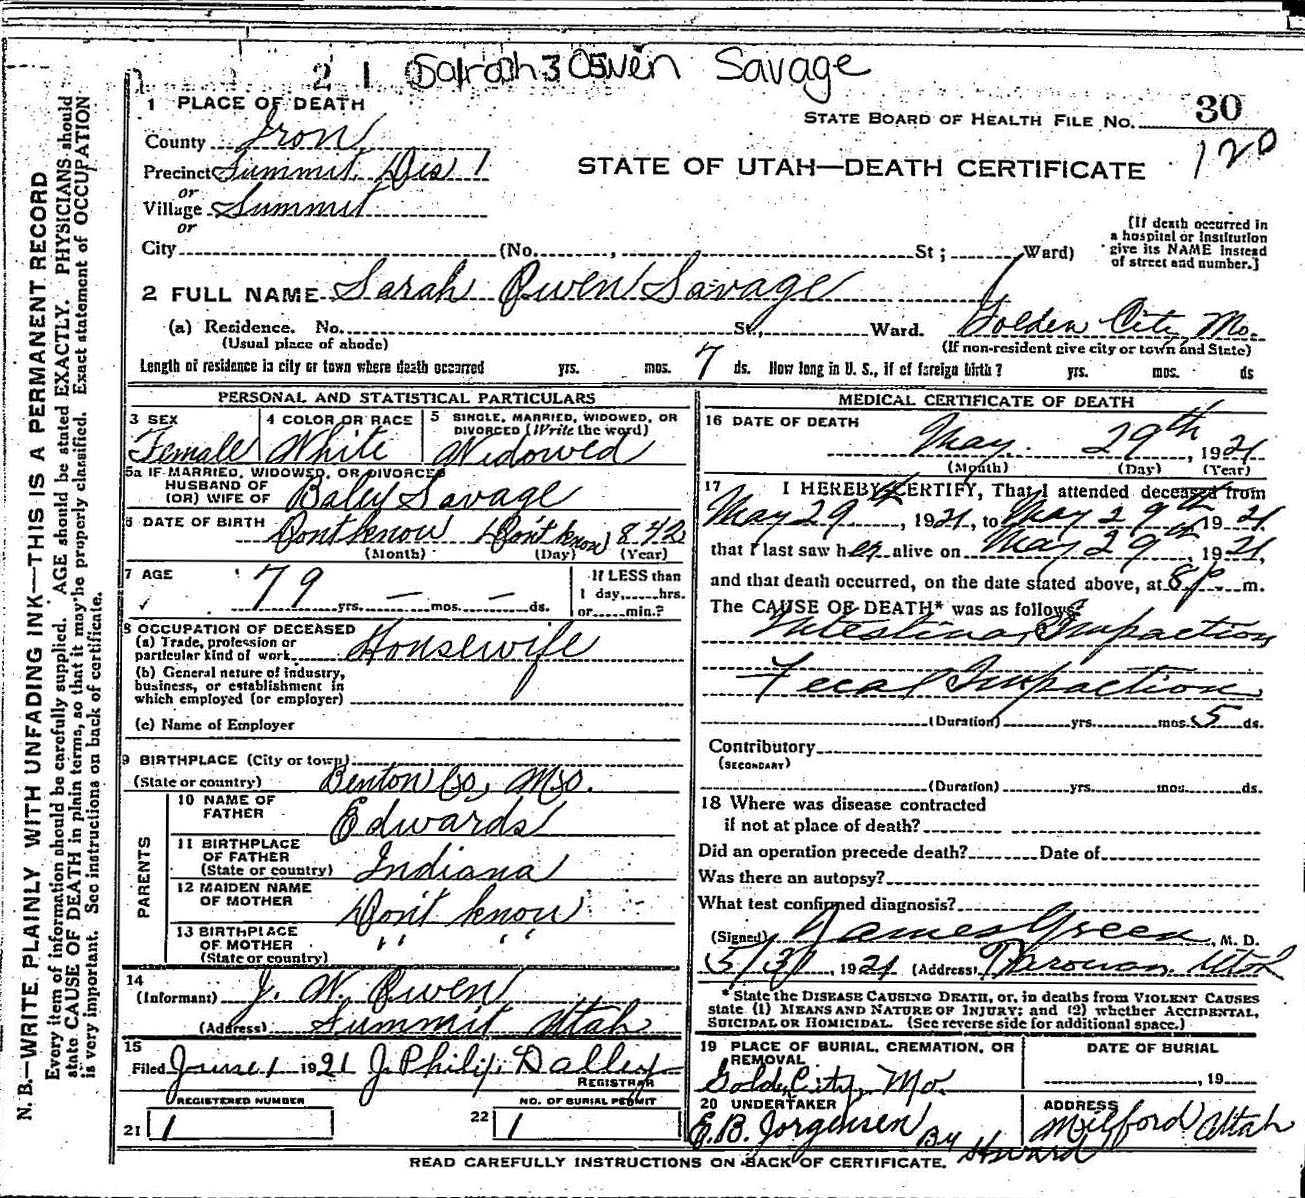 Sarah Owen Savage
1 PLACE OF DEATH
County Iron
Precinct Summit Dis 1
or
Village Summit
or
City (No. , St ; Ward)
STATE BOARD OF HEALTH FILE NO. 30
120
STATE OF UTAH—DEATH CERTIFICATE
[If death occurred in
a hospital or institution
give its NAME instead
of street and number.]
2 FULL NAME Sarah Owen Savage
(a) Residence. No. St., Ward. Golden City, Mo.
(Usual place of abode) (If non-resident give city or town and State)
Length of residence in city or town where death occurred yrs. mos. 7 ds. How long in U. S., if of foreign birth? yrs. mos. ds
PERSONAL AND STATISTICAL PARTICULARS
3 SEX Female
4 COLOR OR RACE White
5 SINGLE, MARRIED, WIDOWED, OR
DIVORCED (Write the word)
Widowed
5a IF MARRIED, WIDOWED, OR DIVORCED
HUSBAND OF
(OR) WIFE OF Baley Savage
6 DATE OF BIRTH Dont know Don't know 842
(Month) (Day) (Year)
7 AGE 79 yrs. — mos. — ds.
If LESS than
1 day, hrs.
or min.?
8 OCCUPATION OF DECEASED
(a) Trade, profession or
particular kind of work Housewife
(b) General nature of industry,
business, or establishment in
which employed (or employer)
(c) Name of Employer
9 BIRTHPLACE (City or town)
(State or country) Benton Co, Mo.
PARENTS
10 NAME OF
FATHER Edwards
11 BIRTHPLACE
OF FATHER
(State or country) Indiana
12 MAIDEN NAME
OF MOTHER Don't know
13 BIRTHPLACE
OF MOTHER " "
(State or country)
14
(Informant) J. W. Owen
(Address) Summit Utah
15
Filed June 1 1921 J. Philip Dalley
REGISTRAR
REGISTERED NUMBER
21 1
NO. OF BURIAL PERMIT
22 1
MEDICAL CERTIFICATE OF DEATH
16 DATE OF DEATH
May 29th, 1921
(Month) (Day) (Year)
17 I HEREBY CERTIFY, That I attended deceased from
May 29th, 1921, to May 29th 1921
that I last saw her alive on May 29th, 1921,
and that death occurred, on the date stated above, at 8 p m.
The CAUSE OF DEATH* was as follows:
Intestinal Impaction
Fecal Impaction
(Duration) yrs. mos. 5 ds.
Contributory
(SECONDARY)
(Duration) yrs. mos. ds.
18 Where was disease contracted
if not at place of death?
Did an operation precede death? Date of
Was there an autopsy?
What test confirmed diagnosis?
(Signed) James Green, M. D.
5/31, 1921 (Address) Parowan Utah
* State the DISEASE CAUSING DEATH, or, in deaths from VIOLENT CAUSES
state (1) MEANS AND NATURE OF INJURY; and (2) whether ACCIDENTAL,
SUICIDAL OR HOMICIDAL. (See reverse side for additional space.)
19 PLACE OF BURIAL, CREMATION, OR
REMOVAL
Gold City, Mo.
DATE OF BURIAL
, 19
20 UNDERTAKER
E. B. Jorgensen By
ADDRESS
Milford Utah
READ CAREFULLY INSTRUCTIONS ON BACK OF CERTIFICATE.
N. B.—WRITE PLAINLY WITH UNFADING INK—THIS IS A PERMANENT RECORD
Every item of information should be carefully supplied. AGE should be stated EXACTLY. PHYSICIANS should
state CAUSE OF DEATH in plain terms, so that it may be properly classified. Exact statement of OCCUPATION
is very important. See instructions on back of certificate.